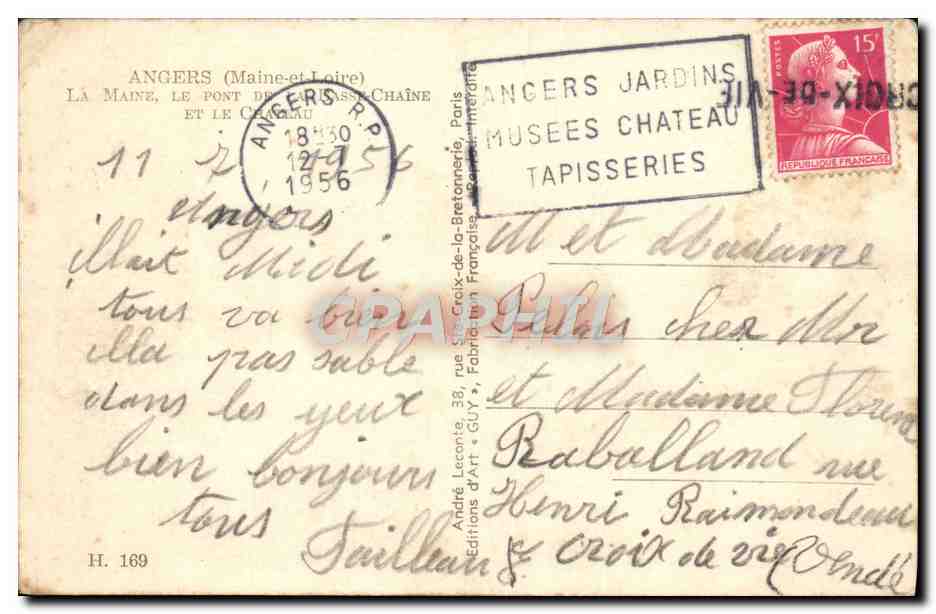 ANGERS (Maine-et-Loire)
LA MAINE, LE PONT DE LA BASSE-CHAÎNE
ET LE CHATEAU
ANGERS R.P.
18H30
12-7
1956
ANGERS JARDINS
MUSEES CHATEAU
TAPISSERIES
POSTES
15F
REPUBLIQUE FRANÇAISE
CROIX-DE-VIE
11 7 1956
Angers
Mait Midi
tous va bien
illa pas sable
dans les yeux
bien bonjours
tous
Tailleau J.
H. 169
André Leconte, 38, rue Ste-Croix-de-la-Bretonnerie, Paris
Editions d'Art « GUY », Fabrication Française, Interdite
CPAPHIL
M et Madame
chez Mr
et Madame Florent
Raballand rue
Henri Raimondeau
St Croix de vie (Vendé